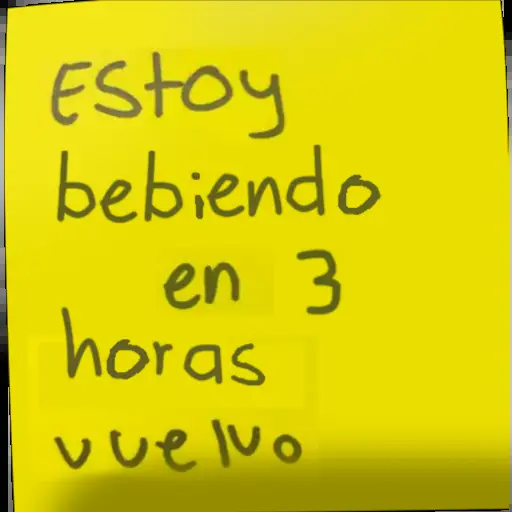 Estoy
bebiendo
en 3
horas
vuelvo